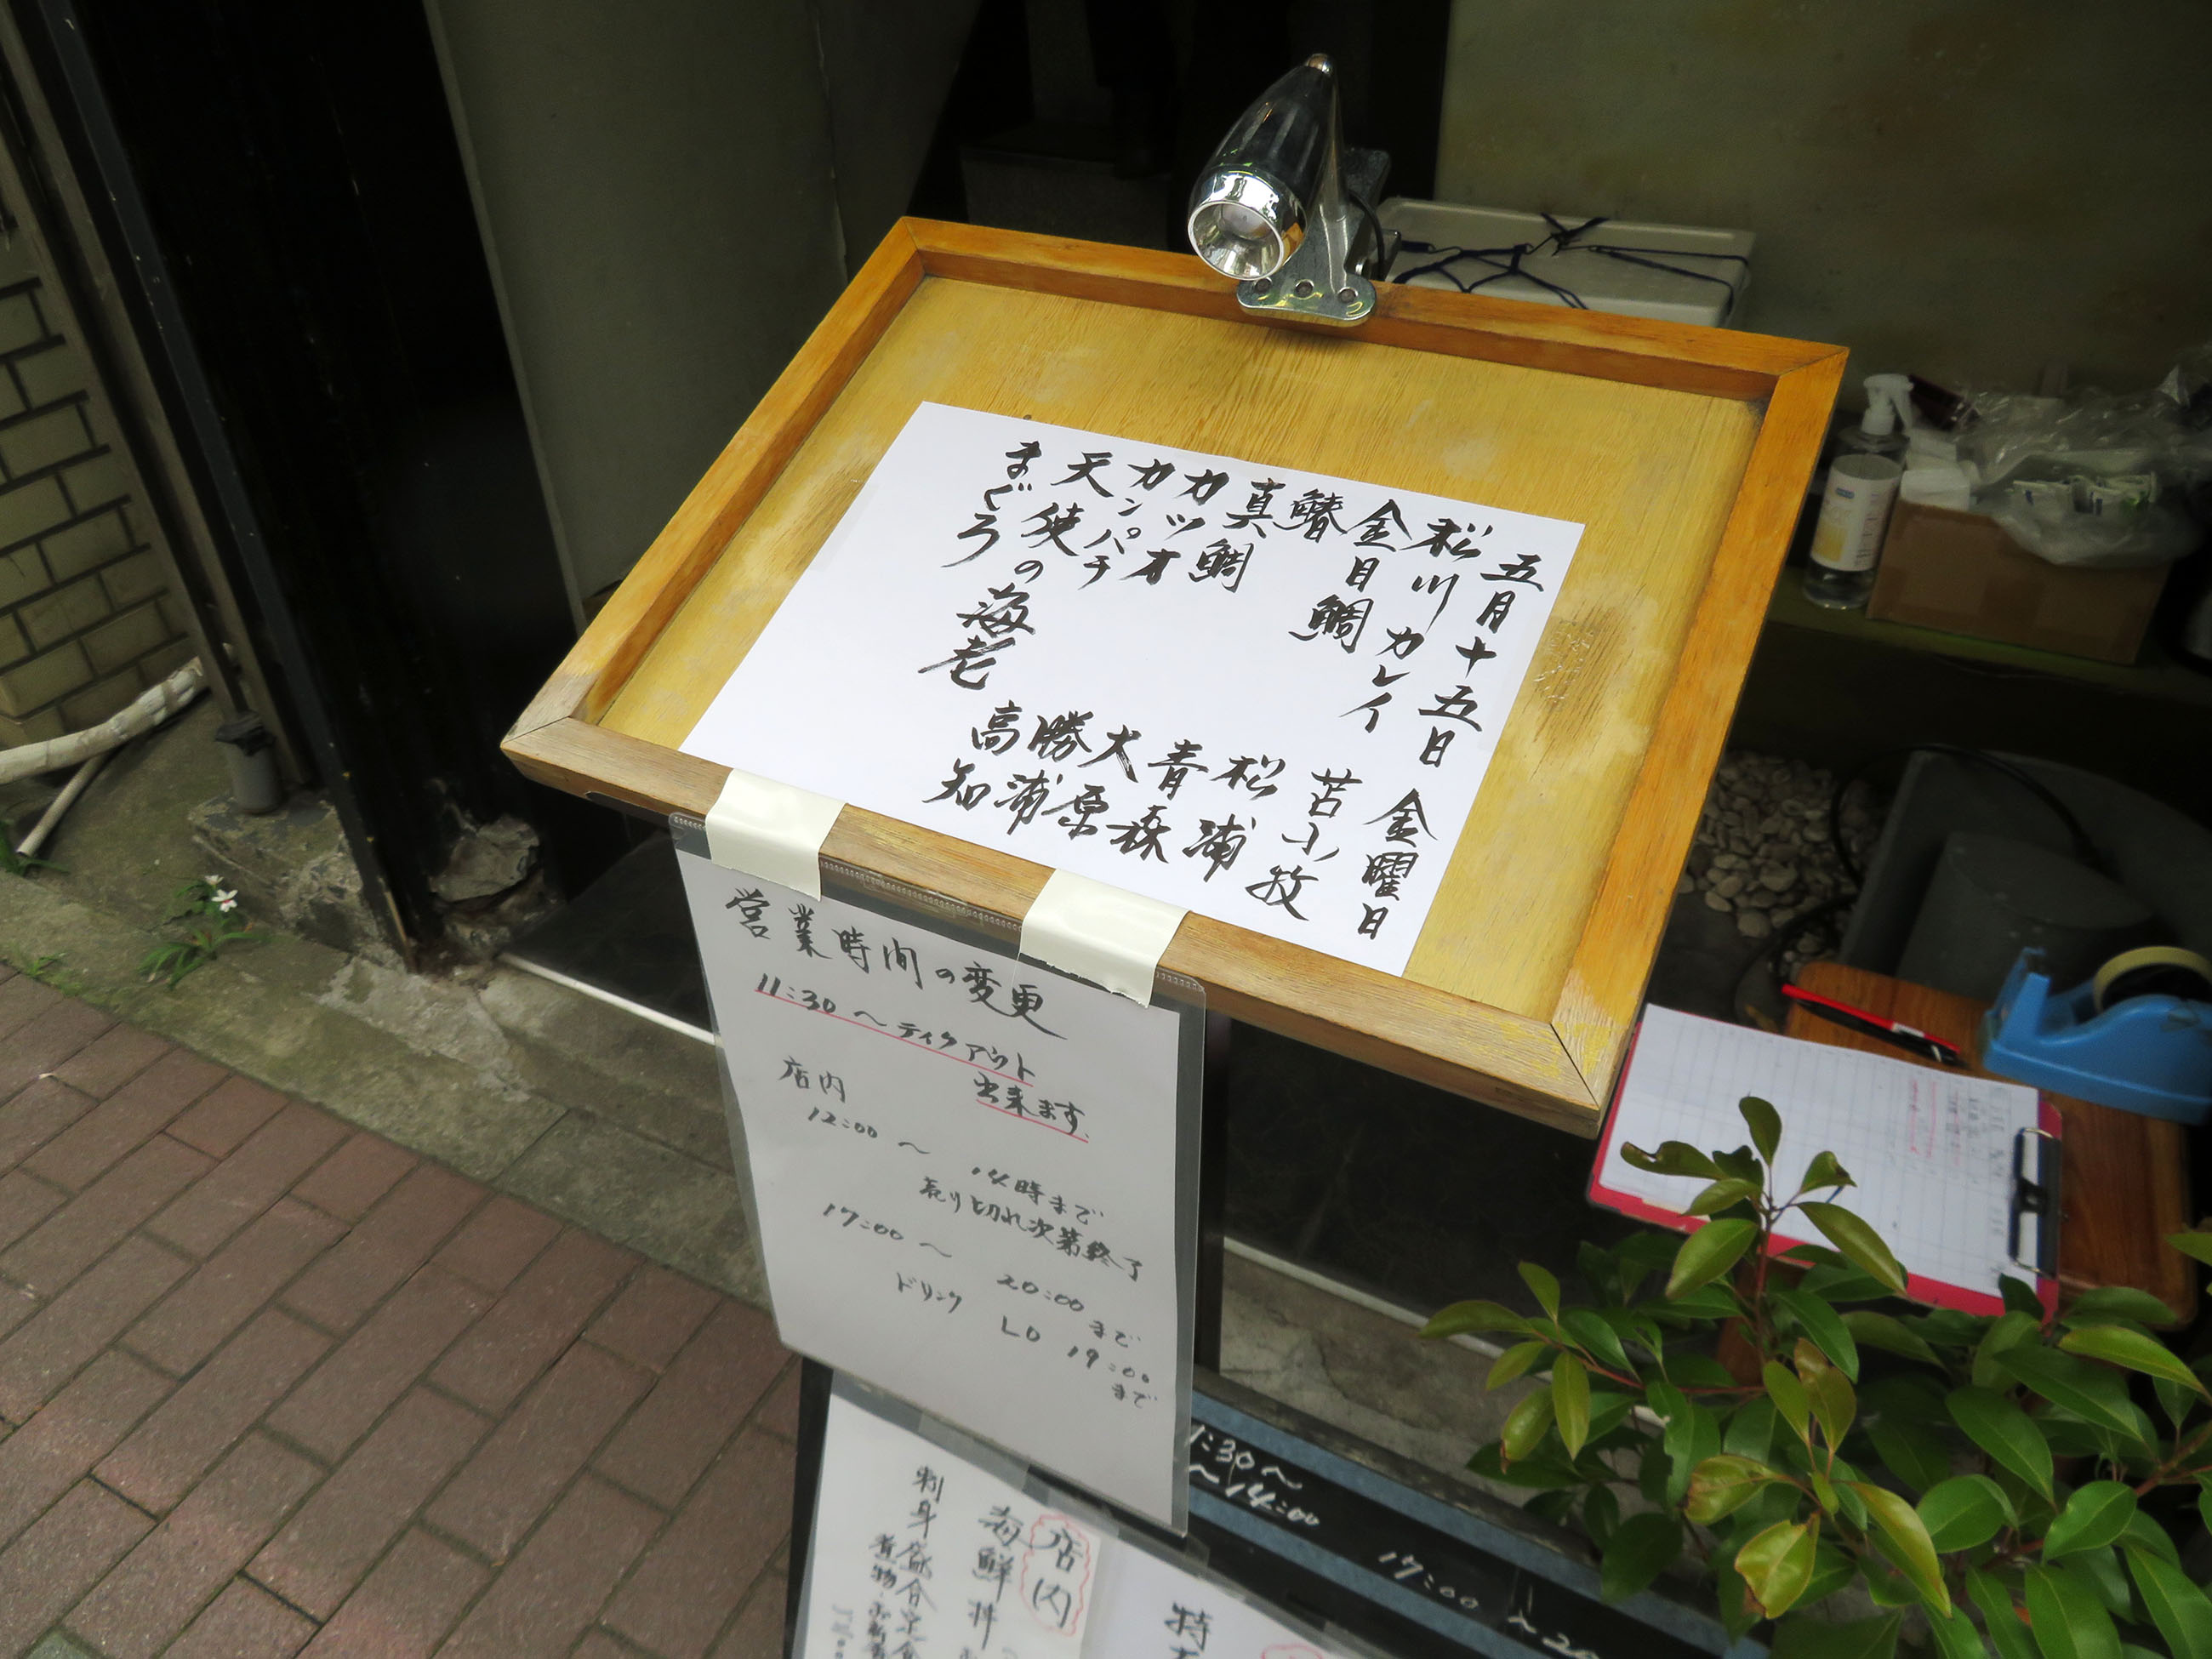 五月十五日 金曜日
松川カレイ 苫小牧
金目鯛 松浦
鰆 青森
真鯛 大原
カツオ 勝浦
カンパチ 高知
天使の海老
まぐろ
営業時間の変更
11:30～テイクアウト
出来ます。
店内
12:00～
14時まで
売り切れ次第終了
17:00～
20:00まで
ドリンク LO 19:00
まで
店内
海鮮丼
刺身盛合定食
:30～
～14:00
17:00
特